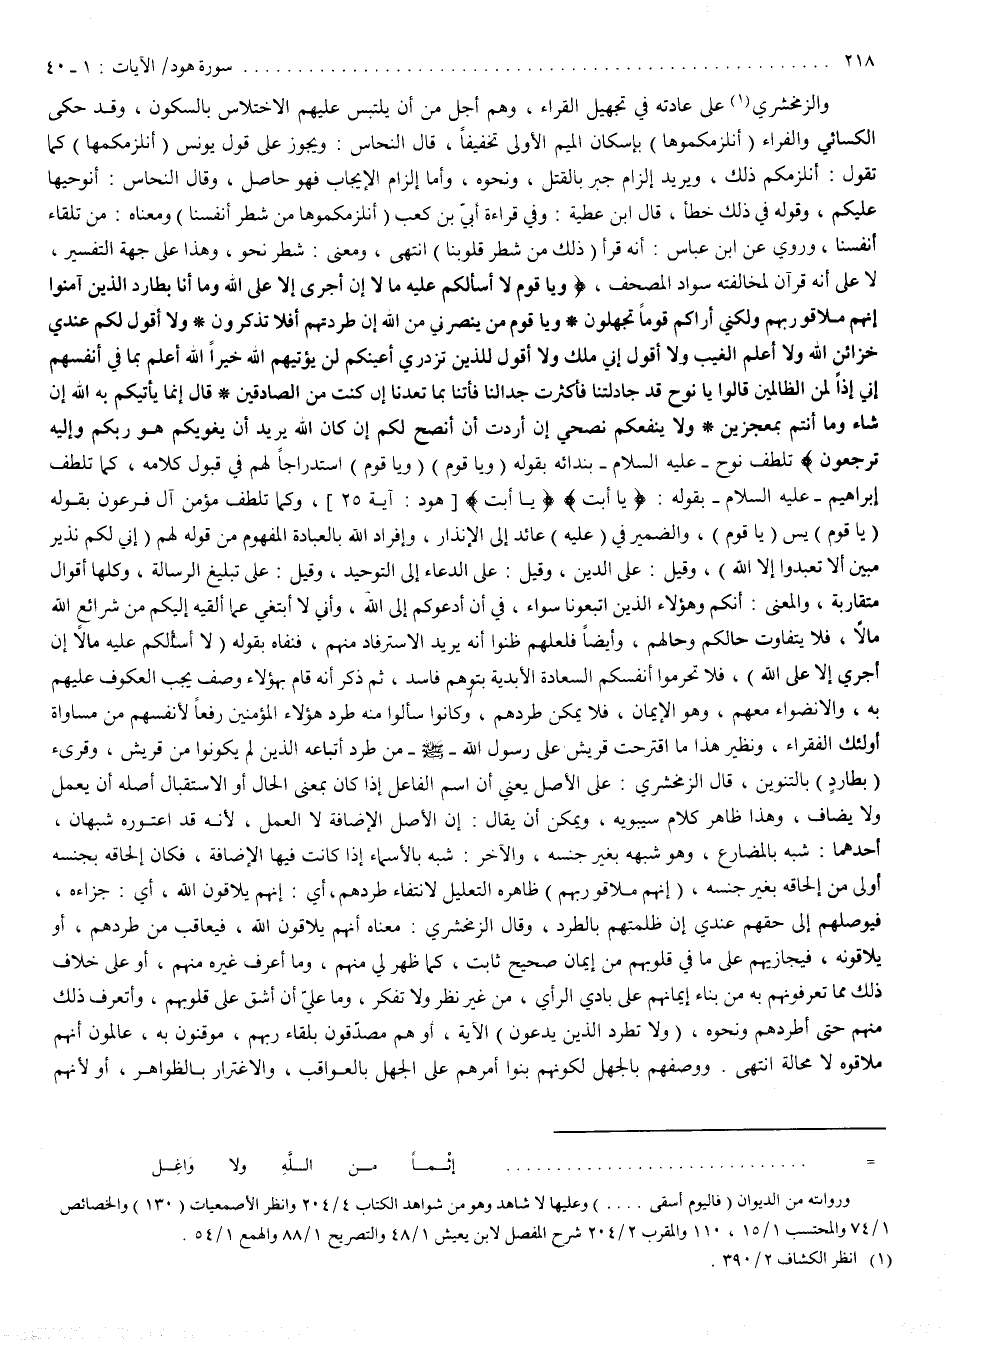 ٢١٨ ........................................................ سورة هود/ الآيات : ١ ـ ٤٠
والزمخشري(١) على عادته في تجهيل القراء ، وهم أجل من أن يلتبس عليهم الاختلاس بالسكون ، وقد حكى
الكسائي والفراء ( أنلزمكموها ) بإسكان الميم الأولى تخفيفاً ، قال النحاس : ويجوز على قول يونس ( أنلزمكمها ) كما
تقول : أنلزمكم ذلك ، ويريد إلزام جبر بالقتل ، ونحوه ، وأما إلزام الإيجاب فهو حاصل ، وقال النحاس : أنوحيها
عليكم ، وقوله في ذلك خطأ ، قال ابن عطية : وفي قراءة أبيّ بن كعب ( أنلزمكموها من شطر أنفسنا ) ومعناه : من تلقاء
أنفسنا ، وروي عن ابن عباس : أنه قرأ ( ذلك من شطر قلوبنا ) انتهى ، ومعنى : شطر نحو ، وهذا على جهة التفسير ،
لا على أنه قرآن لمخالفته سواد المصحف ، ﴿ ويا قوم لا أسألكم عليه مالا إن أجرى إلا على الله وما أنا بطارد الذين آمنوا
إنهم ملاقو ربهم ولكني أراكم قوماً تجهلون * ويا قوم من ينصرني من الله إن طردتهم أفلا تذكرون * ولا أقول لكم عندي
خزائن الله ولا أعلم الغيب ولا أقول إني ملك ولا أقول للذين تزدري أعينكم لن يؤتيهم الله خيراً الله أعلم بما في أنفسهم
إني إذاً لمن الظالمين قالوا يا نوح قد جادلتنا فأكثرت جدالنا فأتنا بما تعدنا إن كنت من الصادقين * قال إنما يأتيكم به الله إن
شاء وما أنتم بمعجزين * ولا ينفعكم نصحي إن أردت أن أنصح لكم إن كان الله يريد أن يغويكم هو ربكم وإليه
ترجعون ﴾ تلطف نوح ـ عليه السلام ـ بندائه بقوله ( ويا قوم ) ( ويا قوم ) استدراجاً لهم في قبول كلامه ، كما تلطف
إبراهيم ـ عليه السلام ـ بقوله : ﴿ يا أبت ﴾ ﴿ يا أبت ﴾ [ هود : آية ٢٥ ] ، وكما تلطف مؤمن آل فرعون بقوله
( يا قوم ) يس ( يا قوم ) ، والضمير في ( عليه ) عائد إلى الإنذار ، وإفراد الله بالعبادة المفهوم من قوله لهم ( إني لكم نذير
مبين ألا تعبدوا إلا الله ) ، وقيل : على الدين ، وقيل : على الدعاء إلى التوحيد ، وقيل : على تبليغ الرسالة ، وكلها أقوال
متقاربة ، والمعنى : أنكم وهؤلاء الذين اتبعونا سواء ، في أن أدعوكم إلى الله ، وأني لا أبتغي عما ألقيه إليكم من شرائع الله
مالاً ، فلا يتفاوت حالكم وحالهم ، وأيضاً فلعلهم ظنوا أنه يريد الاسترفاد منهم ، فنفاه بقوله ( لا أسألكم عليه مالاً إن
أجري إلا على الله ) ، فلا تحرموا أنفسكم السعادة الأبدية بتوهم فاسد ، ثم ذكر أنه قام بهؤلاء وصف يجب العكوف عليهم
به ، والانضواء معهم ، وهو الإيمان ، فلا يمكن طردهم ، وكانوا سألوا منه طرد هؤلاء المؤمنين رفعاً لأنفسهم من مساواة
أولئك الفقراء ، ونظير هذا ما اقترحت قريش على رسول الله ـ ﷺ ـ من طرد أتباعه الذين لم يكونوا من قريش ، وقرىء
( بطاردٍ ) بالتنوين ، قال الزمخشري : على الأصل يعني أن اسم الفاعل إذا كان بمعنى الحال أو الاستقبال أصله أن يعمل
ولا يضاف ، وهذا ظاهر كلام سيبويه ، ويمكن أن يقال : إن الأصل الإضافة لا العمل ، لأنه قد اعتوره شبهان ،
أحدهما : شبه بالمضارع ، وهو شبهه بغير جنسه ، والآخر : شبه بالأسماء إذا كانت فيها الإضافة ، فكان إلحاقه بجنسه
أولى من إلحاقه بغير جنسه ، ( إنهم ملاقو ربهم ) ظاهره التعليل لانتفاء طردهم، أي : إنهم يلاقون الله ، أي : جزاءه ،
فيوصلهم إلى حقهم عندي إن ظلمتهم بالطرد ، وقال الزمخشري : معناه أنهم يلاقون الله ، فيعاقب من طردهم ، أو
يلاقونه ، فيجازيهم على ما في قلوبهم من إيمان صحيح ثابت ، كما ظهر لي منهم ، وما أعرف غيره منهم ، أو على خلاف
ذلك مما تعرفونهم به من بناء إيمانهم على بادي الرأي ، من غير نظر ولا تفكر ، وما عليّ أن أشق على قلوبهم ، وأتعرف ذلك
منهم حتى أطردهم ونحوه ، ( ولا تطرد الذين يدعون ) الآية ، أو هم مصدّقون بلقاء ربهم ، موقنون به ، عالمون أنهم
ملاقوه لا محالة انتهى . ووصفهم بالجهل لكونهم بنوا أمرهم على الجهل بالعواقب ، والاغترار بالظواهر ، أو لأنهم
= .............................. إثْماً من اللَّهِ ولا وَاغِل
وروايته من الديوان ( فاليوم أسقى .... ) وعليها لا شاهد وهو من شواهد الكتاب ٢٠٤/٤ وانظر الأصمعيات ( ١٣٠ ) والخصائص
٧٤/١ والمحتسب ١٥/١ ، ١١٠ والمقرب ٢٠٤/٢ شرح المفصل لابن يعيش ٤٨/١ والتصريح ٨٨/١ والهمع ٥٤/١ .
(١) انظر الكشاف ٣٩٠/٢ .